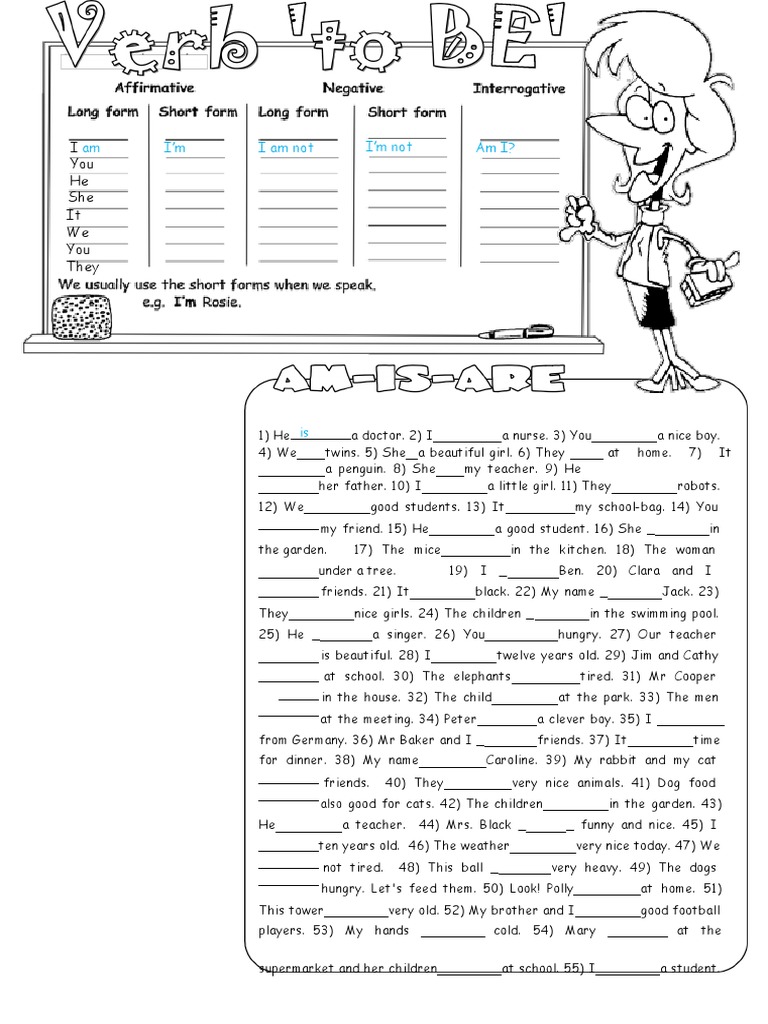 Verb 'to BE'
Affirmative Negative Interrogative
Long form Short form Long form Short form
I am I'm I am not I'm not Am I?
You
He
She
It
We
You
They
We usually use the short forms when we speak,
e.g. I'm Rosie.
AM-IS-ARE
1) He__is______a doctor. 2) I_________a nurse. 3) You_________a nice boy.
4) We____twins. 5) She__a beautiful girl. 6) They _____ at home. 7) It
_________a penguin. 8) She____my teacher. 9) He
________her father. 10) I_________a little girl. 11) They_________robots.
12) We_________good students. 13) It_________my school-bag. 14) You
________my friend. 15) He_________a good student. 16) She _________in
the garden. 17) The mice_________in the kitchen. 18) The woman
________under a tree. 19) I _________Ben. 20) Clara and I
________ friends. 21) It_________black. 22) My name _________Jack. 23)
They_________nice girls. 24) The children _________in the swimming pool.
25) He _________a singer. 26) You__________hungry. 27) Our teacher
________ is beautiful. 28) I_________twelve years old. 29) Jim and Cathy
________ at school. 30) The elephants_________tired. 31) Mr Cooper
______in the house. 32) The child_________at the park. 33) The men
________at the meeting. 34) Peter________a clever boy. 35) I _________
from Germany. 36) Mr Baker and I _________friends. 37) It_________time
for dinner. 38) My name_________Caroline. 39) My rabbit and my cat
________ friends. 40) They_________very nice animals. 41) Dog food
________also good for cats. 42) The children_________in the garden. 43)
He_________a teacher. 44) Mrs. Black _______ funny and nice. 45) I
________ten years old. 46) The weather_________very nice today. 47) We
________ not tired. 48) This ball ________very heavy. 49) The dogs
________hungry. Let's feed them. 50) Look! Polly_________at home. 51)
This tower_________very old. 52) My brother and I_________good football
players. 53) My hands ________ cold. 54) Mary ________ at the
supermarket and her children_________at school. 55) I_________a student.